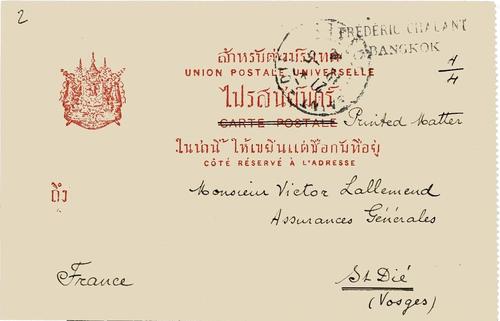 2
FRÉDÉRIC CHALANT
BANGKOK
สำหรับต่างประเทศ
UNION POSTALE UNIVERSELLE
4/4
ไปรสนีบัตร์
CARTE POSTALE Printed Matter
ในน่านี้ ให้เขียนแต่ชื่อกับที่อยู่
CÔTÉ RÉSERVÉ À L'ADRESSE
ถึง
Monsieur Victor Lallemend
Assurances Générales
France
St Dié
(Vosges)